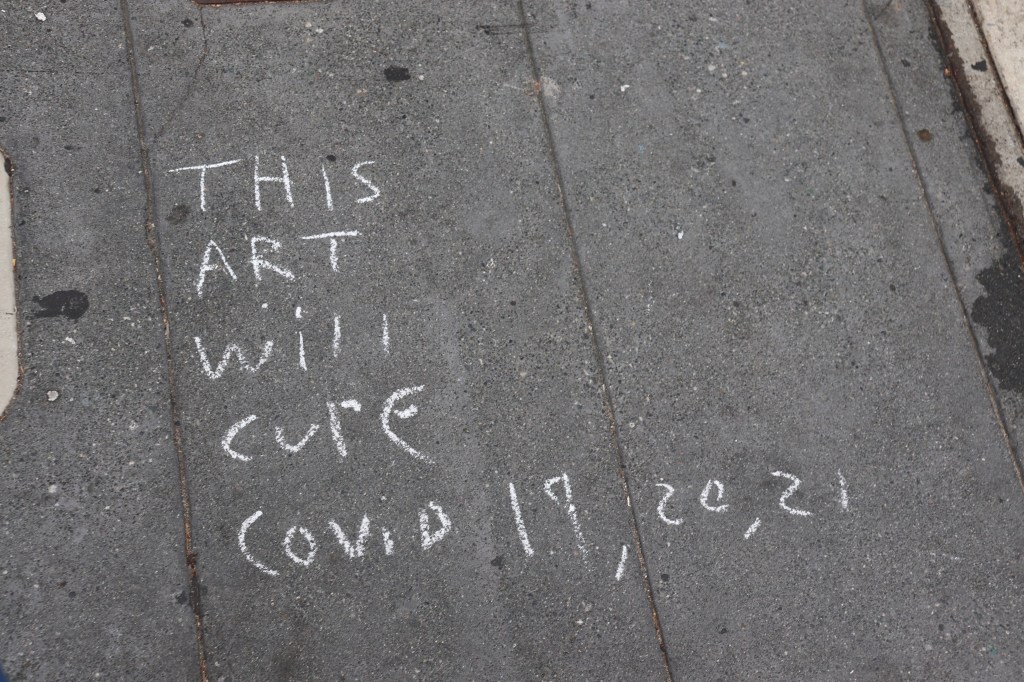 THIS
ART
will
curE
COVID 19, 20, 21